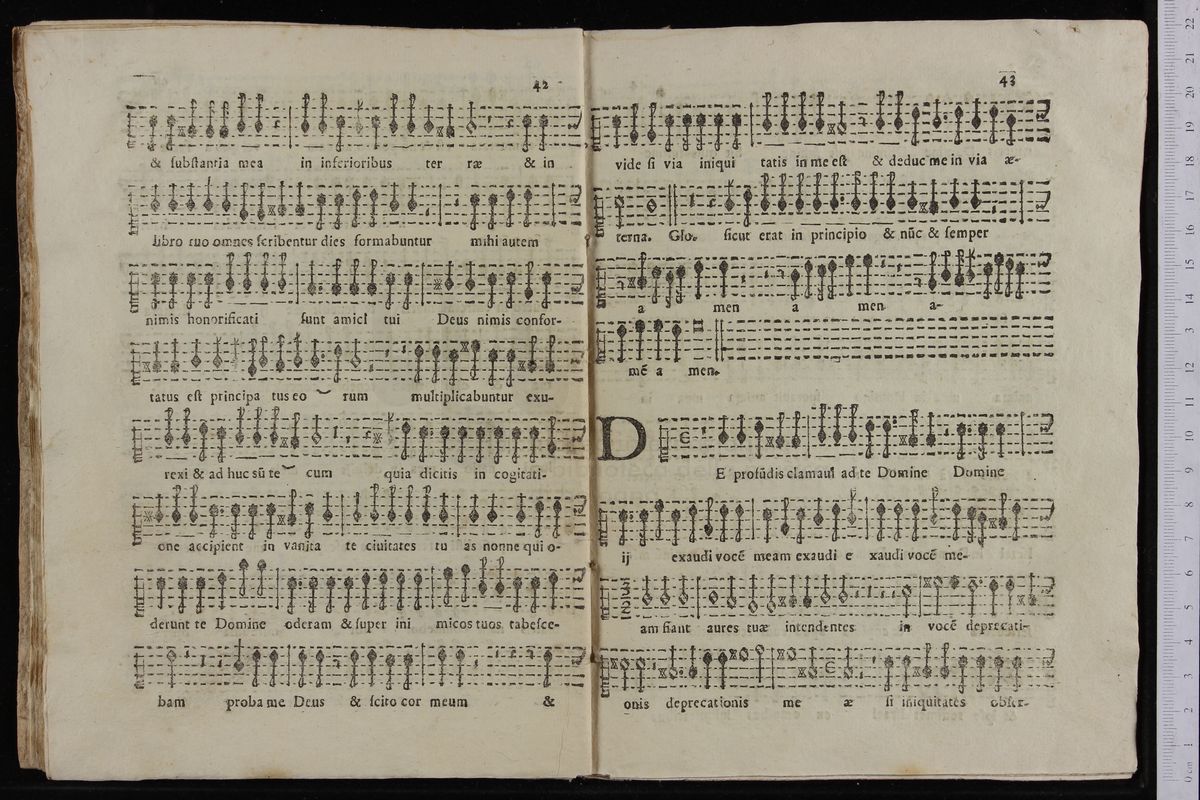 42
& ſubſtantia mea in inferioribus ter ræ & in
libro tuo omnes ſcribentur dies formabuntur mihi autem
nimis honorificati ſunt amici tui Deus nimis confor-
tatus eſt principa tus eo rum multiplicabuntur exu-
rexi & ad huc sũ te cum quia dicitis in cogitati-
one accipient in vanita te ciuitates tu as nonne qui o-
derunt te Domine oderam & ſuper ini micos tuos tabeſce-
bam proba me Deus & ſcito cor meum &
43
vide ſi via iniqui tatis in me eſt & deduc me in via æ-
terna. Glo. ſicut erat in principio & nũc & ſemper
a men a men a-
mẽ a men.
DE profũdis clamaui ad te Domine Domine
ij exaudi vocẽ meam exaudi e xaudi vocẽ me-
am fiant aures tuæ intendentes in vocẽ deprecati-
onis deprecationis me æ ſi iniquitates obſer-